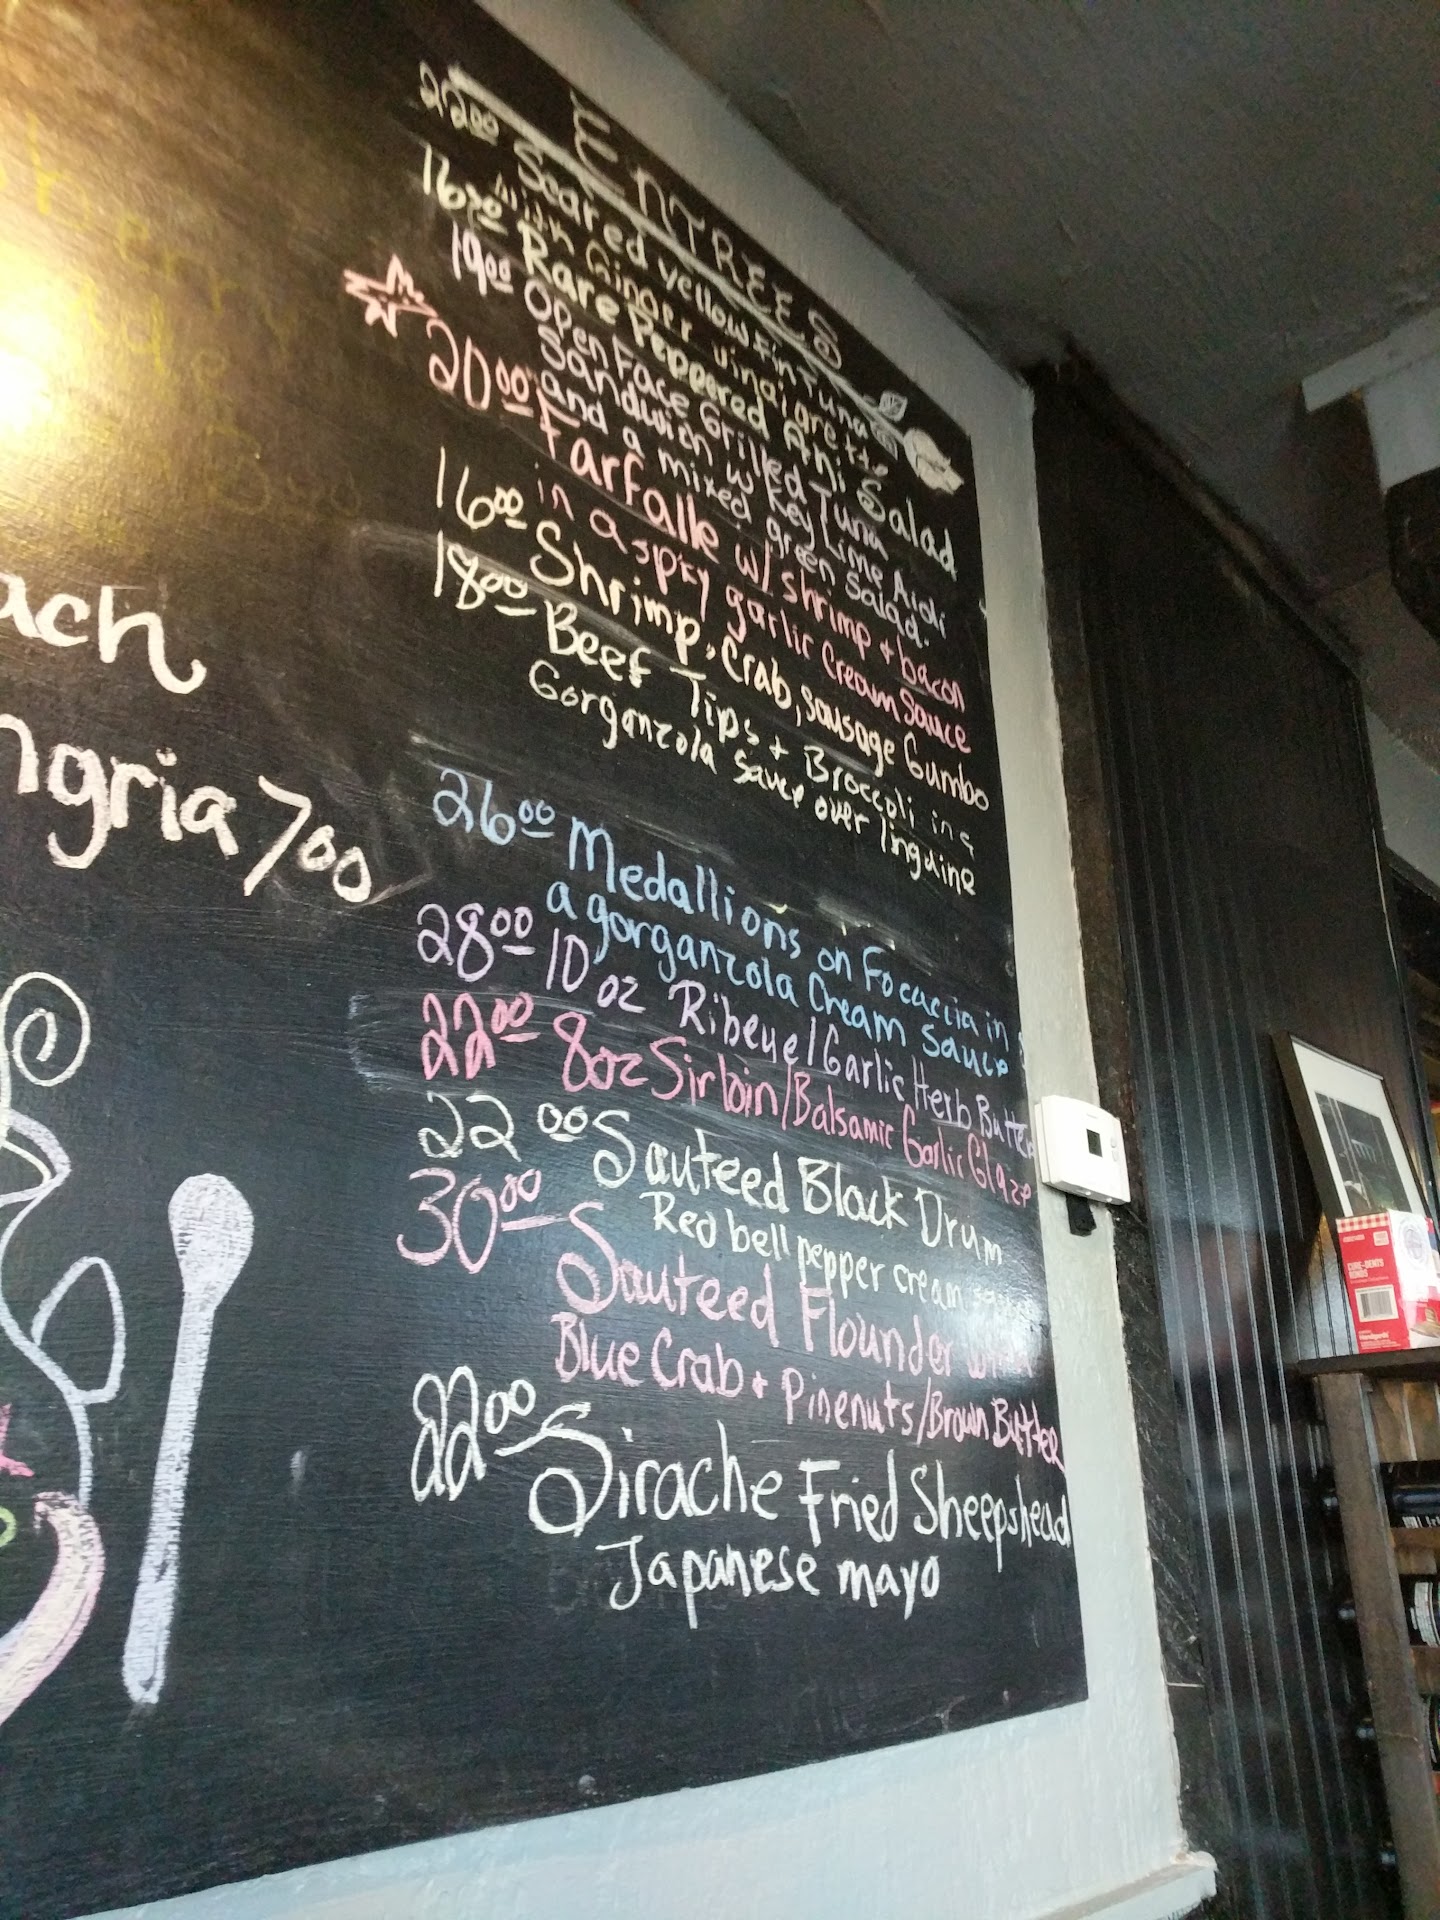 ENTREES
22.00 Seared yellowfin Tuna
with Ginger vinaigrette
16.00 Rare Peppered Ahi Salad
19.00 Open Face Grilled Tuna
Sandwich w/ Key Lime Aioli
and a mixed green Salad.
20.00 Farfalle w/ shrimp + bacon
in a spicy garlic Cream Sauce
16.00 Shrimp, Crab, sausage Gumbo
18.00 Beef Tips + Broccoli in a
Gorganzola Sauce over linguine
26.00 Medallions on Focaccia in
a gorganzola Cream Sauce
28.00 10 oz Ribeye/Garlic Herb Butter
22.00 8oz Sirloin/Balsamic Garlic Glaze
22.00 Sauteed Black Drum
Red bell pepper cream sauce
30.00 Sauteed Flounder with
Blue Crab + Pinenuts/Brown Butter
22.00 Sirache Fried Sheepshead
Japanese mayo
ach
ngria 7.00